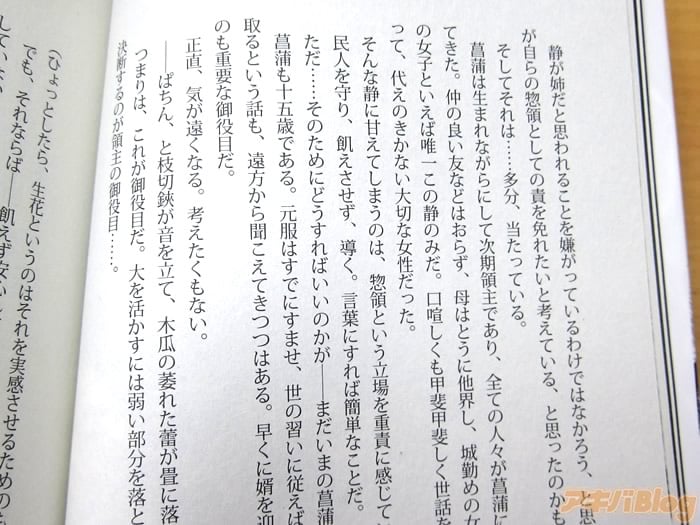 静が姉だと思われることを嫌がっているわけではなかろう、と思
が自らの惣領としての責を免れたいと考えている、と思ったのかも
そしてそれは……多分、当たっている。
菖蒲は生まれながらにして次期領主であり、全ての人々が菖蒲に
てきた。仲の良い友などはおらず、母はとうに他界し、城勤めの女
の女子といえば唯一この静のみだ。口喧しくも甲斐甲斐しく世話を
って、代えのきかない大切な女性だった。
そんな静に甘えてしまうのは、惣領という立場を重責に感じてい
民人を守り、飢えさせず、導く。言葉にすれば簡単なことだ。
ただ……そのためにどうすればいいのかが――まだいまの菖蒲
菖蒲も十五歳である。元服はすでにすませ、世の習いに従えば
取るという話も、遠方から聞こえてきつつはある。早くに婿を迎
のも重要な御役目だ。
正直、気が遠くなる。考えたくもない。
――ぱちん、と枝切鋏が音を立て、木瓜の萎れた蕾が畳に落
つまりは、これが御役目だ。大を活かすには弱い部分を落と
決断するのが領主の御役目……。
(ひょっとしたら、生花というのはそれを実感させるためのも
でも、それならば――飢えず安心し
アキバBlog